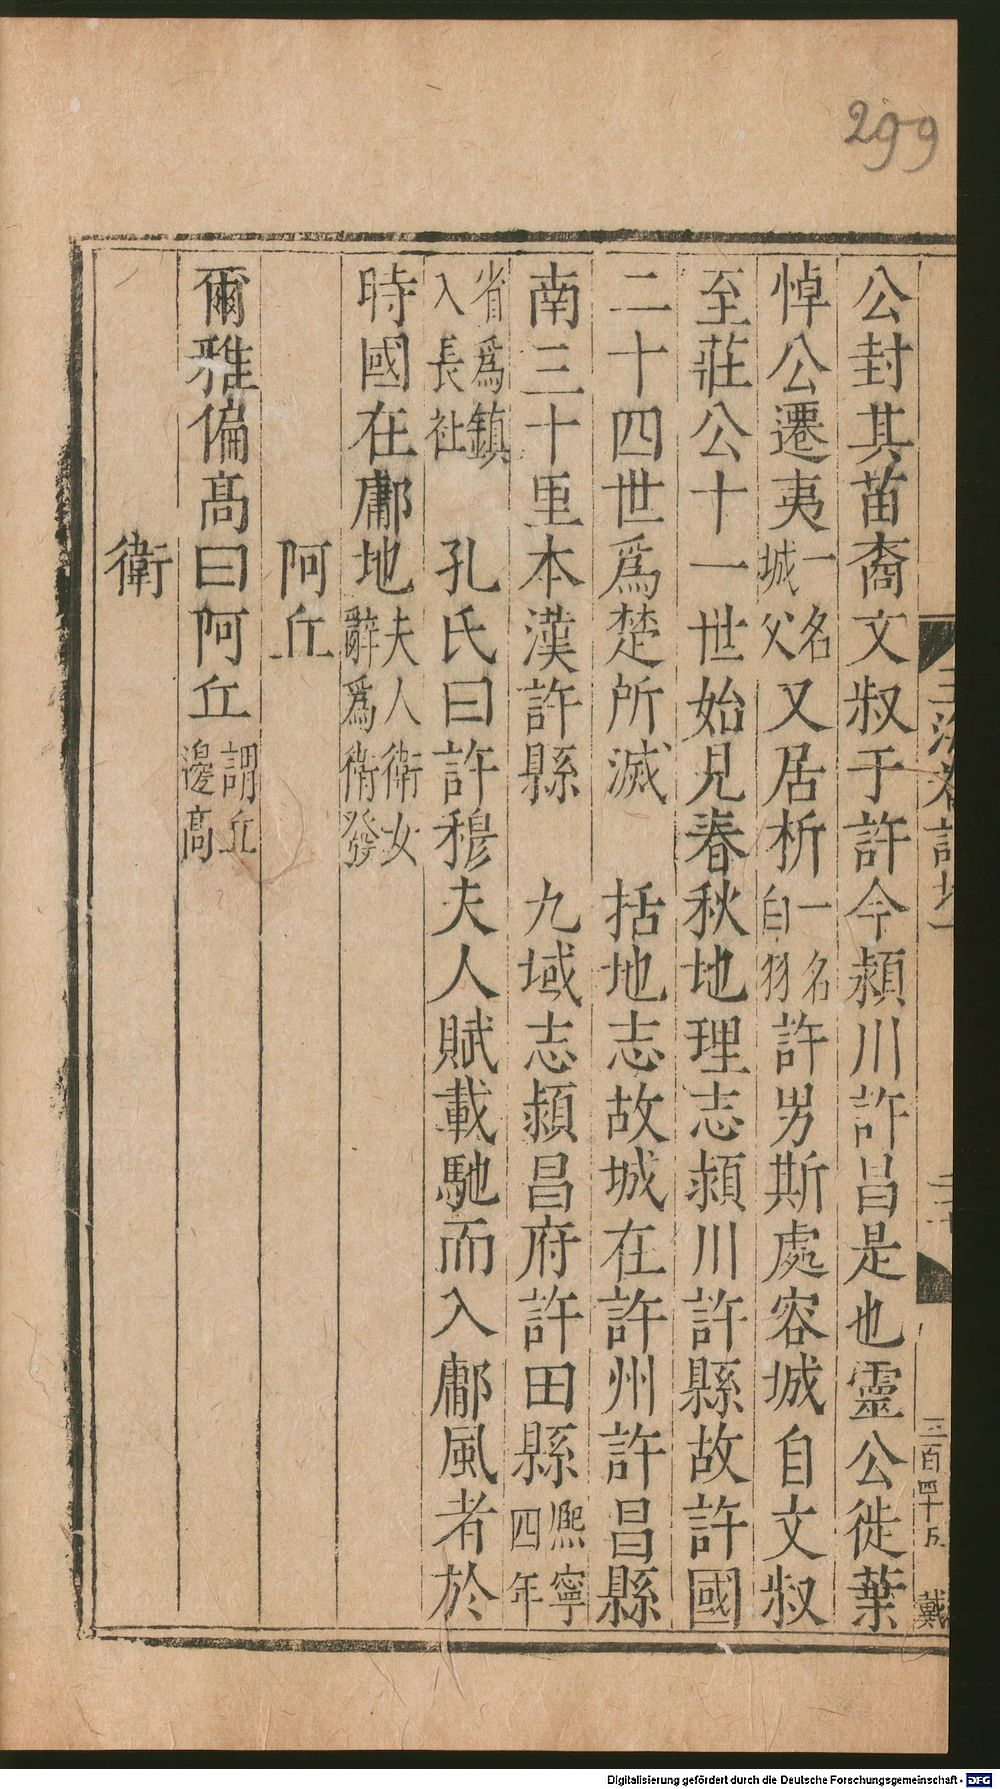 299
公封其苗裔文叔于許今潁川許昌是也靈公徙葉
悼公遷夷一名城父又居析一名白羽許男斯處容城自文叔
至莊公十一世始見春秋地理志潁川許縣故許國
二十四世爲楚所滅 括地志故城在許州許昌縣
南三十里本漢許縣 九域志潁昌府許田縣熈寧四年
省爲鎮入長社 孔氏曰許穆夫人賦載馳而入鄘風者於
時國在鄘地夫人衛女辭爲衛發
阿丘
爾雅偏高曰阿丘謂丘邊高
衛
三百四十五 戴
Digitalisierung gefördert durch die Deutsche Forschungsgemeinschaft - DFG